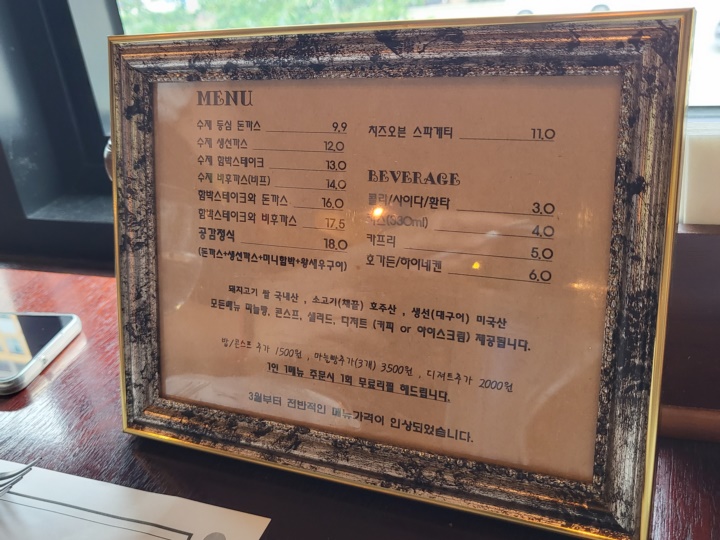 MENU
수제 등심 돈까스 9.9
수제 생선까스 12.0
수제 함박스테이크 13.0
수제 비후까스(비프) 14.0
함박스테이크와 돈까스 16.0
함박스테이크와 비후까스 17.5
공간정식 18.0
(돈까스+생선까스+미니함박+왕새우구이)
치즈오븐 스파게티 11.0
BEVERAGE
콜라/사이다/환타 3.0
(330ml) 4.0
카프리 5.0
호가든/하이네켄 6.0
돼지고기 쌀 국내산 , 소고기(채끝) 호주산 , 생선(대구이) 미국산
모든메뉴 마늘빵, 콘스프, 샐러드, 디저트 (커피 or 아이스크림) 제공됩니다.
밥/콘스프 추가 1500원 , 마늘빵추가(3개) 3500원 , 디저트추가 2000원
1인 1메뉴 주문시 1회 무료리필 해드립니다.
3월부터 전반적인 메뉴가격이 인상되었습니다.